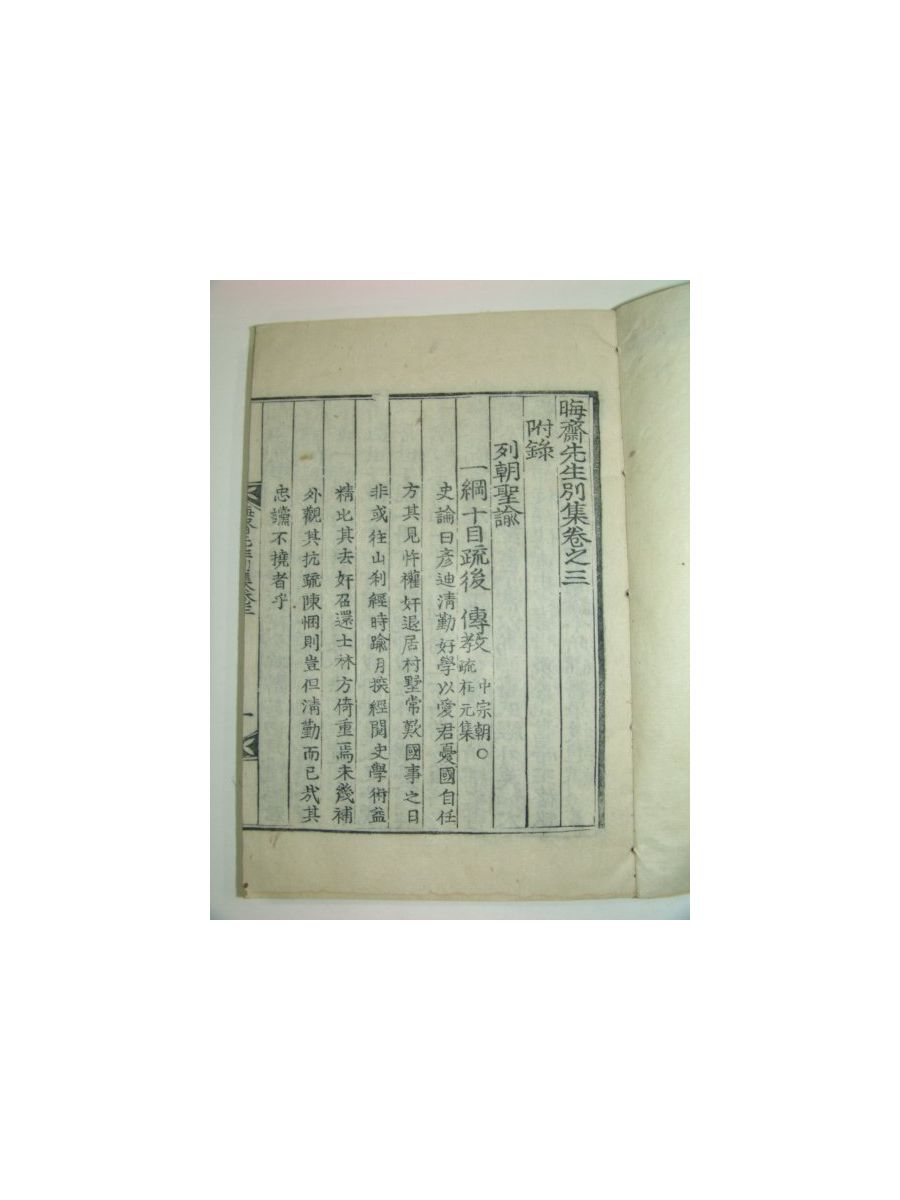 晦齋先生別集卷之三
附錄
列朝聖諭
一綱十目疏後 傳教 中宗朝○疏在元集
史論曰彦迪清勤好學以愛君憂國自任
方其見忤權奸退居村墅常歎國事之日
非或往山刹經時踰月探經閱史學術益
精比其去奸召還士林方倚重焉未幾補
外觀其抗疏陳悃則豈但清勤而已哉其
忠讜不撓者乎
晦齋先生別集卷三 一